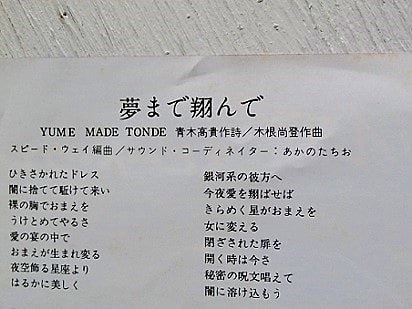 夢まで翔んで
YUME MADE TONDE 青木高貴作詩／木根尚登作曲
スピード・ウェイ編曲／サウンド・コーディネイター：あかのたちお
ひきさかれたドレス
闇に捨てて駈けて来い
裸の胸でおまえを
うけとめてやるさ
愛の宴の中で
おまえが生まれ変る
夜空飾る星座より
はるかに美しく
銀河系の彼方へ
今夜愛を翔ばせば
きらめく星がおまえを
女に変える
閉ざされた扉を
開く時は今さ
秘密の呪文唱えて
闇に溶け込もう